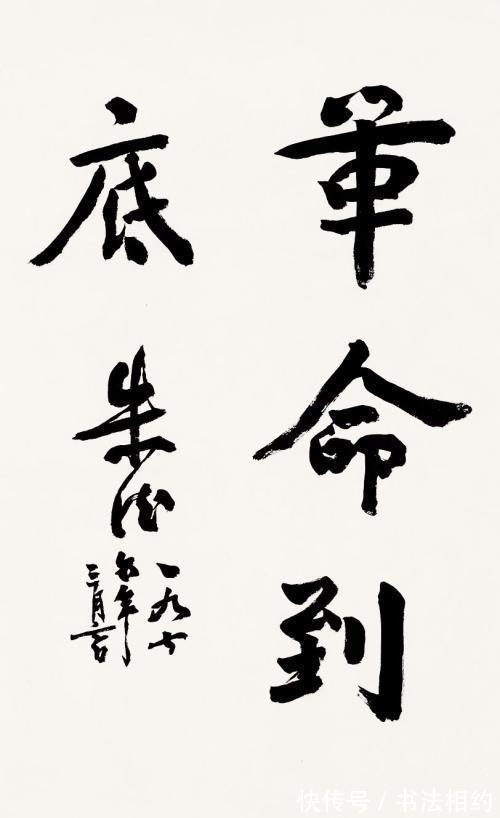 革命到
底
朱德
一九七
五年
三月六日
快传号 / 书法相约